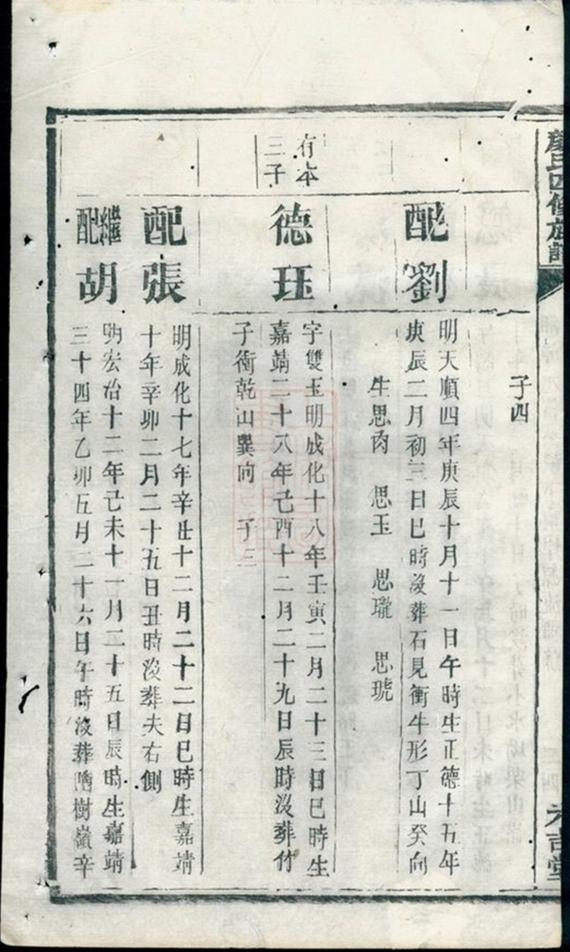 氏四修族譜
元吉堂
子四
配劉
明天順四年庚辰十月十一日午時生正德十五年
庚辰二月初三日巳時沒葬石見衝牛形丁山癸向
生思 思玉 思瓏 思琥
有本
三子
德珏
字雙玉明成化十八年壬寅二月二十三日巳時生
嘉靖二十八年己酉十二月二十九日辰時沒葬竹
子衝乾山巽向 子三
配張
明成化十七年辛丑十二月二十二日巳時生嘉靖
十年辛卯二月二十五日丑時沒葬夫右側
繼配胡
明宏治十二年己未十一月二十五日辰時生嘉靖
三十四年乙卯五月二十六日午時沒葬樹嶺辛